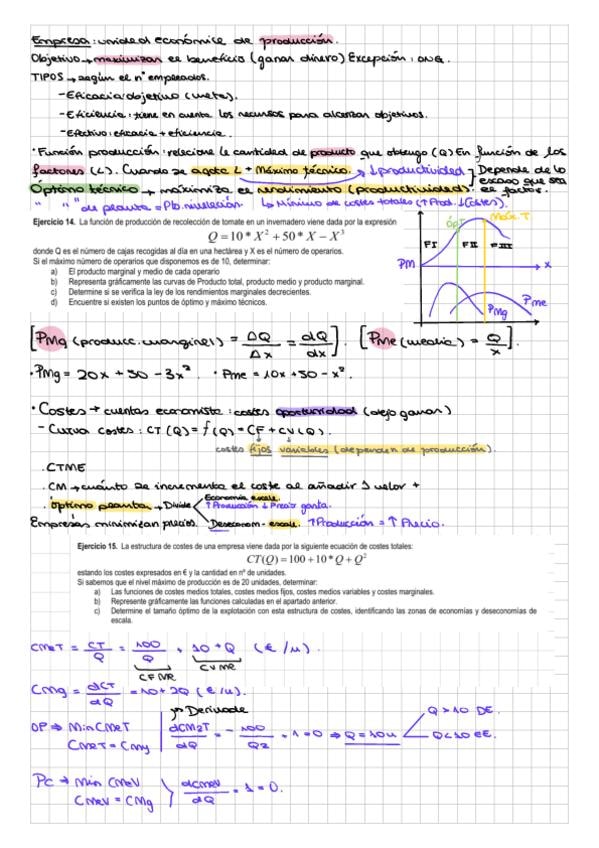 Empresa: unidad económica de producción.
Objetivo → maximizar el beneficio (ganar dinero) Excepción: ONG.
TIPOS → según el nº empleados.
- Eficacia: objetivo (metas).
- Eficiencia: tiene en cuenta los recursos para alcanzar objetivos.
- Efectivo: eficacia + eficiencia.
• Función producción: relacione la cantidad de producto que obtengo (Q) En función de los
factores (L). Cuando se agota L → Máximo técnico. → ↓ productividad
Óptimo técnico → maximiza el rendimiento (productividad).
Depende de lo
escaso que sea
el factor.
" " " de planta = Pto. nivelación. ↳ Mínimo de costes totales (↑ Prod. ↓ Costes).
Ejercicio 14. La función de producción de recolección de tomate en un invernadero viene dada por la expresión
Q = 10 * X² + 50 * X − X³
donde Q es el número de cajas recogidas al día en una hectárea y X es el número de operarios.
Si el máximo número de operarios que disponemos es de 10, determinar:
a) El producto marginal y medio de cada operario
b) Represente gráficamente las curvas de Producto total, producto medio y producto marginal.
c) Determine si se verifica la ley de los rendimientos marginales decrecientes.
d) Encuentre si existen los puntos de óptimo y máximo técnicos.
ÓPT
Máx. T
FI FII FIII
PM
x
PMg
PMe
[PMg (produc. marginal) = ΔQ/Δx = dQ/dx]. [PMe (media) = Q/x].
• PMg = 20x + 50 − 3x². • PMe = 10x + 50 − x².
• Costes → cuentas economista: costes oportunidad (dejo ganar)
- Curva costes: CT (Q) = f(Q) = CF + CV(Q).
costes fijos variables (dependen de producción).
. CTME
. CM → cuánto se incrementa el coste al añadir 1 valor +
. óptimo planta → Divide
Economía escale.
↑ Producción ↓ Precio
Deseconom - escale. ↑ Producción = ↑ Precio.
Empresas minimizan precios.
Ejercicio 15. La estructura de costes de una empresa viene dada por la siguiente ecuación de costes totales:
CT(Q) = 100 + 10 * Q + Q²
estando los costes expresados en € y la cantidad en nº de unidades.
Si sabemos que el nivel máximo de producción es de 20 unidades, determinar:
a) Las funciones de costes medios totales, costes medios fijos, costes medios variables y costes marginales.
b) Represente gráficamente las funciones calculadas en el apartado anterior.
c) Determine el tamaño óptimo de la explotación con esta estructura de costes, identificando las zonas de economías y deseconomías de
escala.
CMeT = CT/Q = 100/Q + 10 + Q (€/u).
CFMe CVMe
CMg = dCT/dQ = 10 + 2Q (€/u).
↱ Derivada
OP ⇒ Min CMeT
CMeT = CMg
dCMeT/dQ = − 100/Q2 + 1 = 0 ⇒ Q = 10u
Q > 10 DE.
Q < 10 EE.
PC → Min CMeV
CMeV = CMg
dCMeV/dQ = 1 = 0.